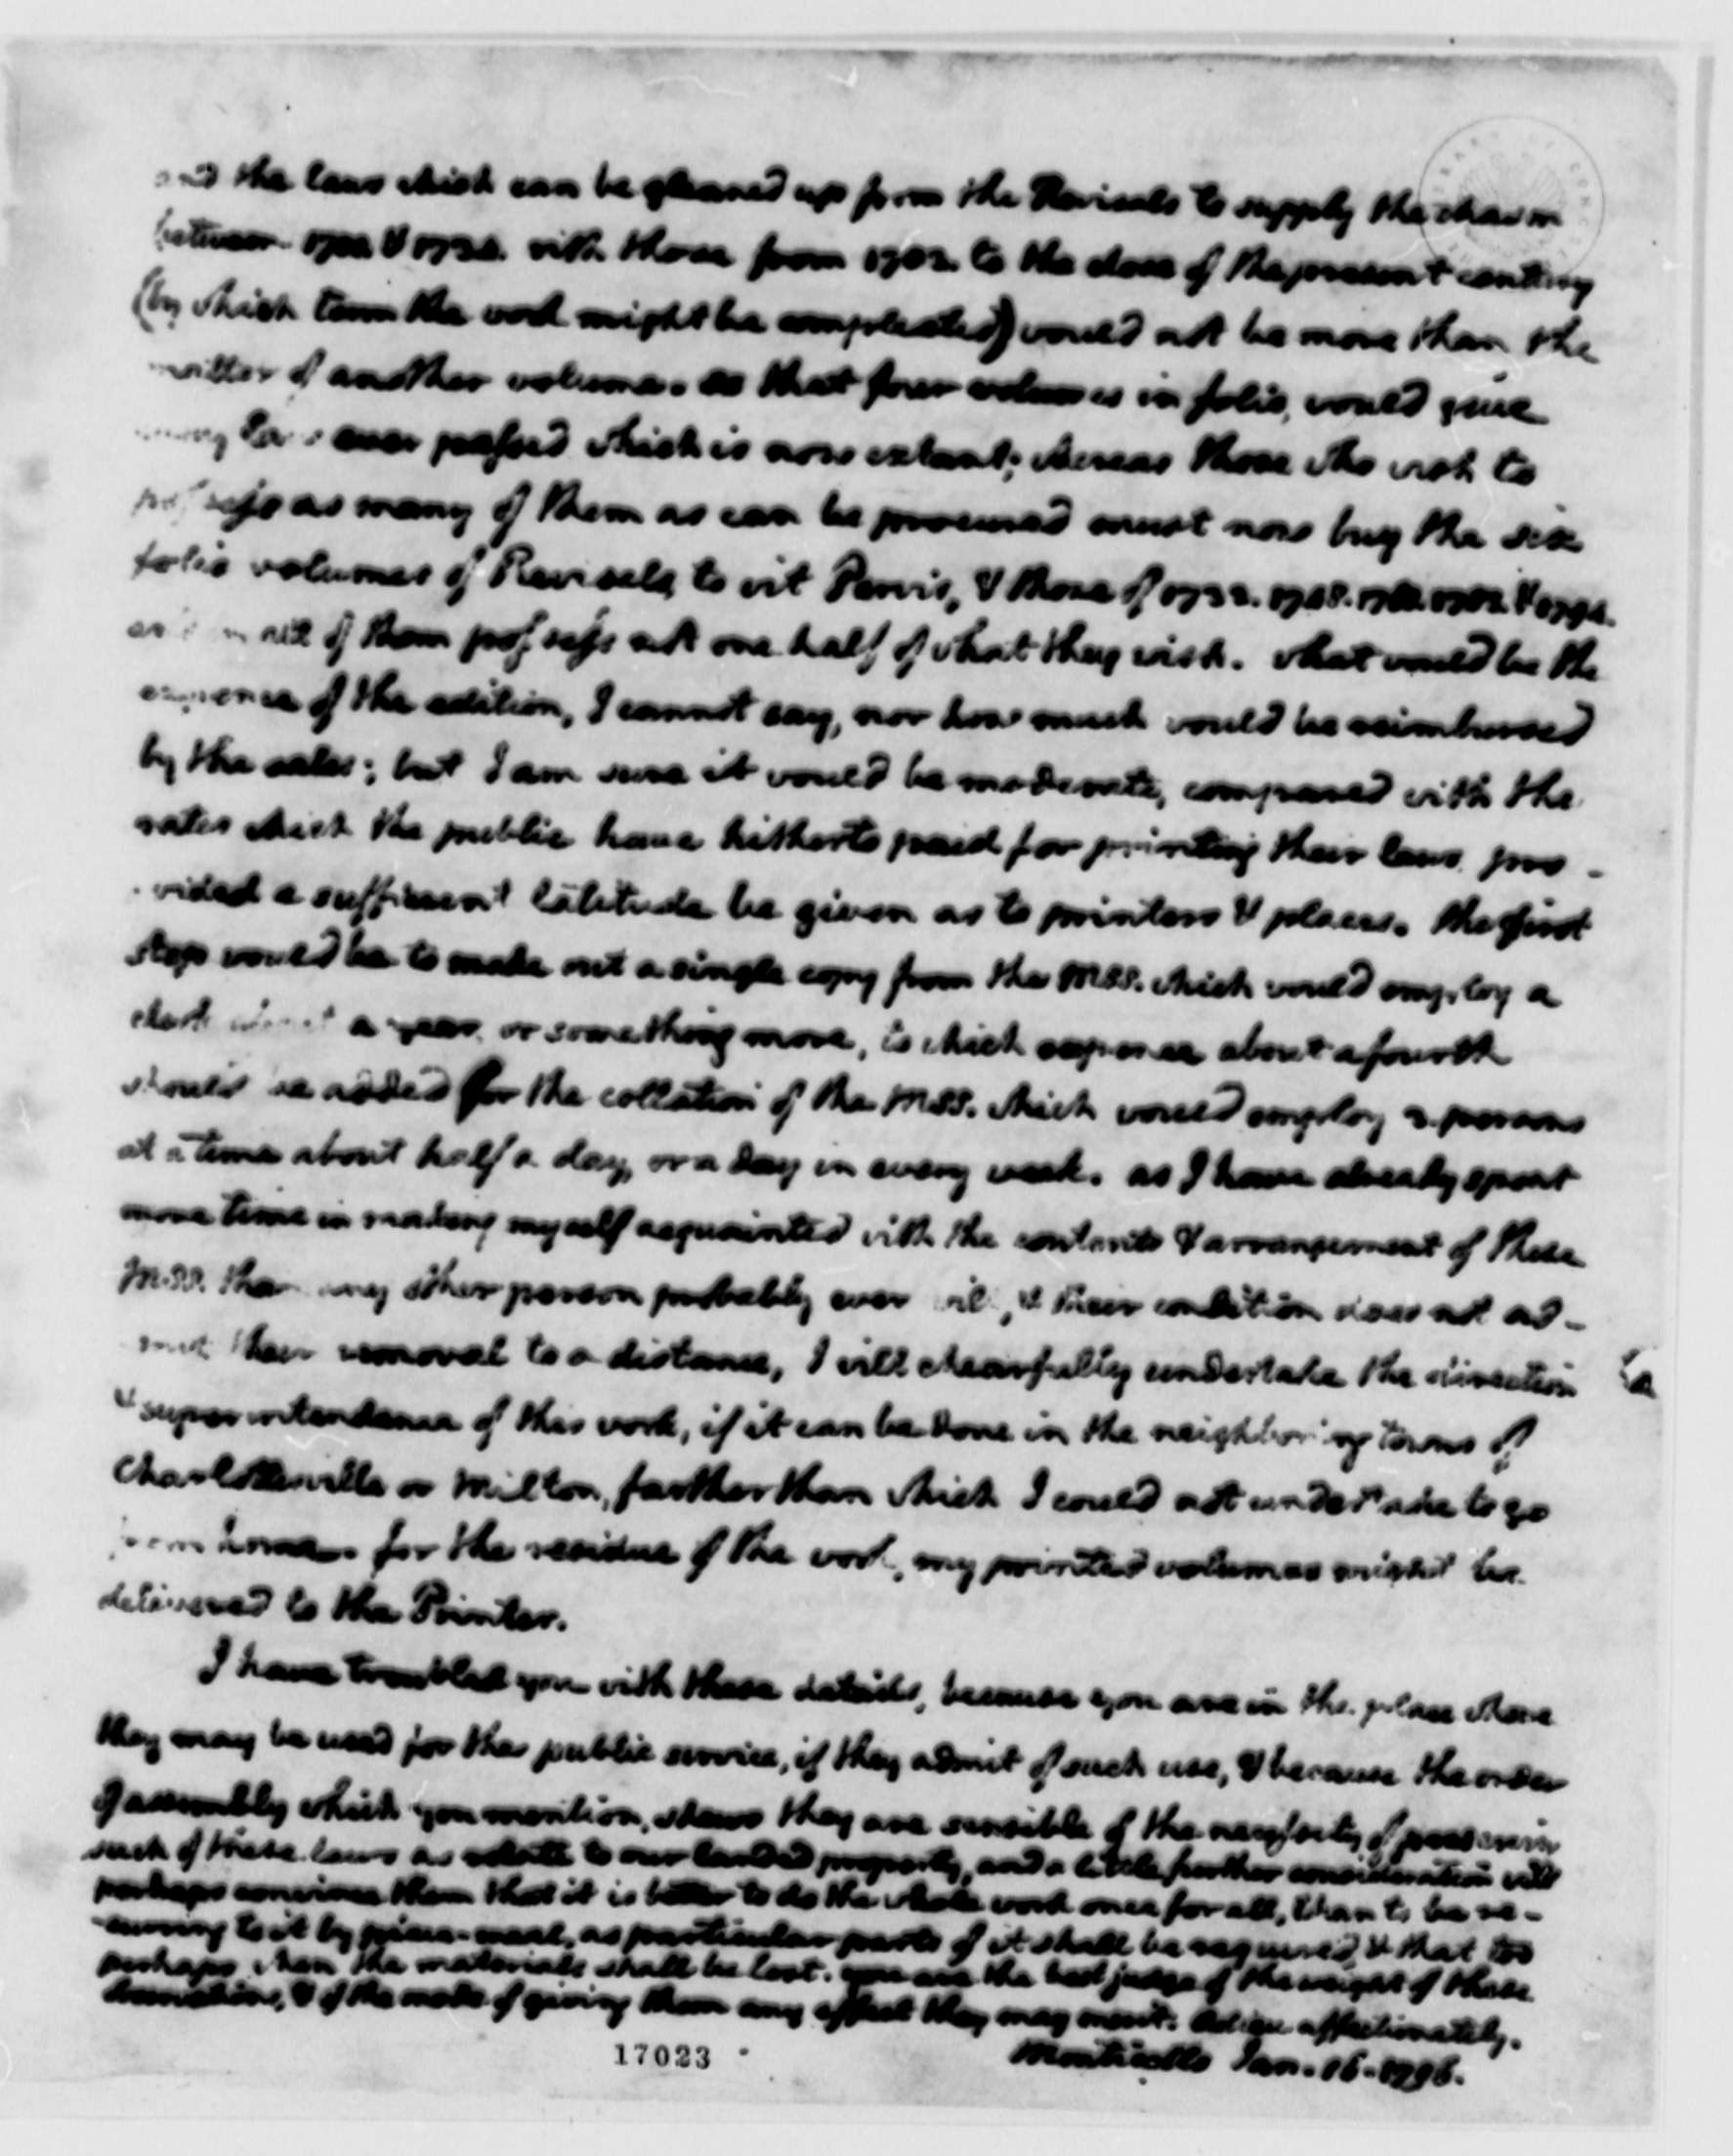 and the laws which can be gleaned up from the Revisals to supply the chasm
between 1700. & 1732. with those from 1702. to the close of the present century
(by which term the work might be compleated) would not be more than the
matter of another volume. so that four volumes in folio, would give
every law ever passed which is now extant; whereas those who wish to
possess as many of them as can be procured must now buy the six
folio volumes of Revisals, to wit Purvis, & those of 1732. 1748. 1768. 1783. & 1794.
and in all of them possess not one half of what they wish. what would be the
expence of the edition, I cannot say, nor how much would be reimbursed
by the sales; but I am sure it would be moderate, compared with the
rates which the public have hitherto paid for printing their laws, pro-
-vided a sufficient latitude be given as to printers & places. the first
step would be to make out a single copy from the MSS. which would employ a
clerk about a year or something more, to which expence about a fourth
should be added for the collation of the MSS. which would employ 3. persons
at a time about half a day, or a day in every week. as I have already spent
more time in making myself acquainted with the contents & arrangement of these
MSS. than any other person probably ever will, & their condition does not ad-
-mit their removal to a distance, I will chearfully undertake the direction
& superintendance of this work, if it can be done in the neighboring towns of
Charlottesville or Milton, farther than which I could not undertake to go
from home. for the residue of the work, my printed volumes might be
delivered to the Printer.
I have troubled you with these details, because you are in the place where
they may be used for the public service, if they admit of such use, & because the order
of assembly which you mention, shews they are sensible of the necessity of preserving
such of these laws as relate to our landed property, and a little further consideration will
perhaps convince them that it is better to do the whole work once for all, than to be re-
-curring to it by piece-meal, as particular parts of it shall be required, & that too
perhaps when the materials shall be lost. you are the best judge of the weight of these
observations, & of the mode of giving them any effect they may merit. Adieu affectionately.
17023
Monticello Jan. 16. 1796.